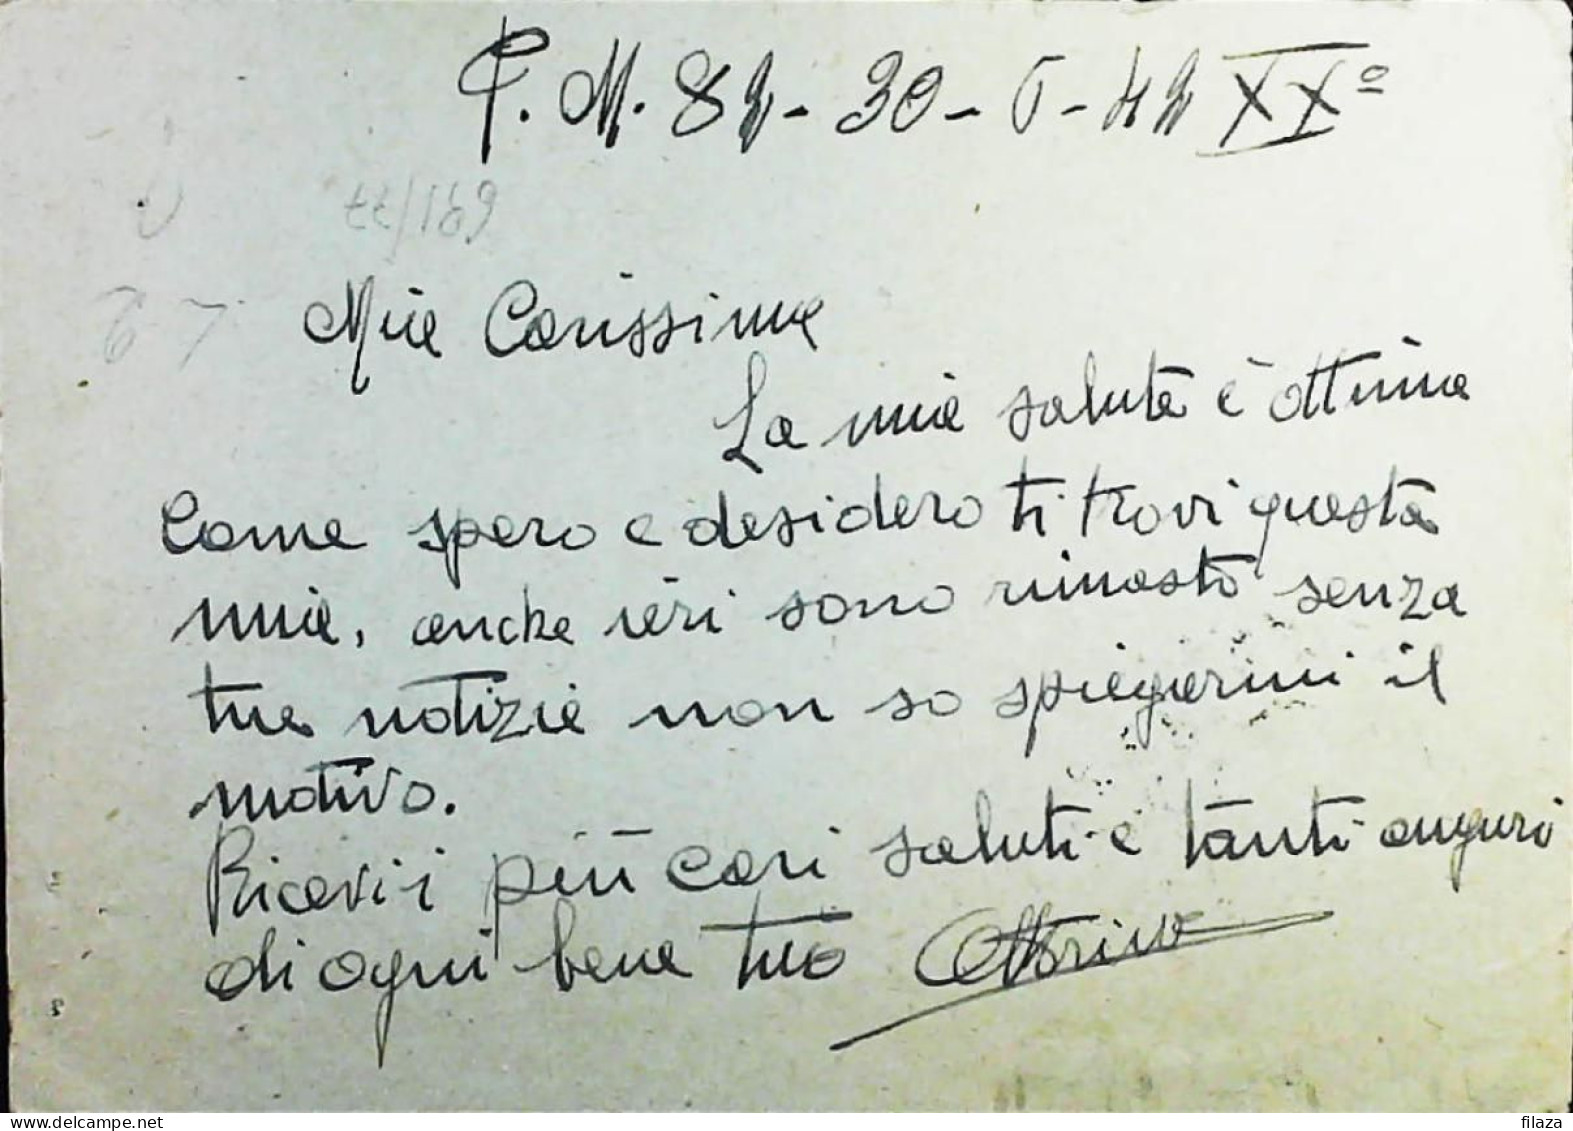 P.M. 82 - 30 - 5 - 42 XX°
77/169
Mia Carissima
La mia salute è ottima
come spero e desidero ti trovi questa
mia, anche ieri sono rimasto senza
tue notizie non so spiegarmi il
motivo.
Ricevi i più cari saluti e tanti auguri
di ogni bene tuo Ottorino
www.delcampe.net
filaza